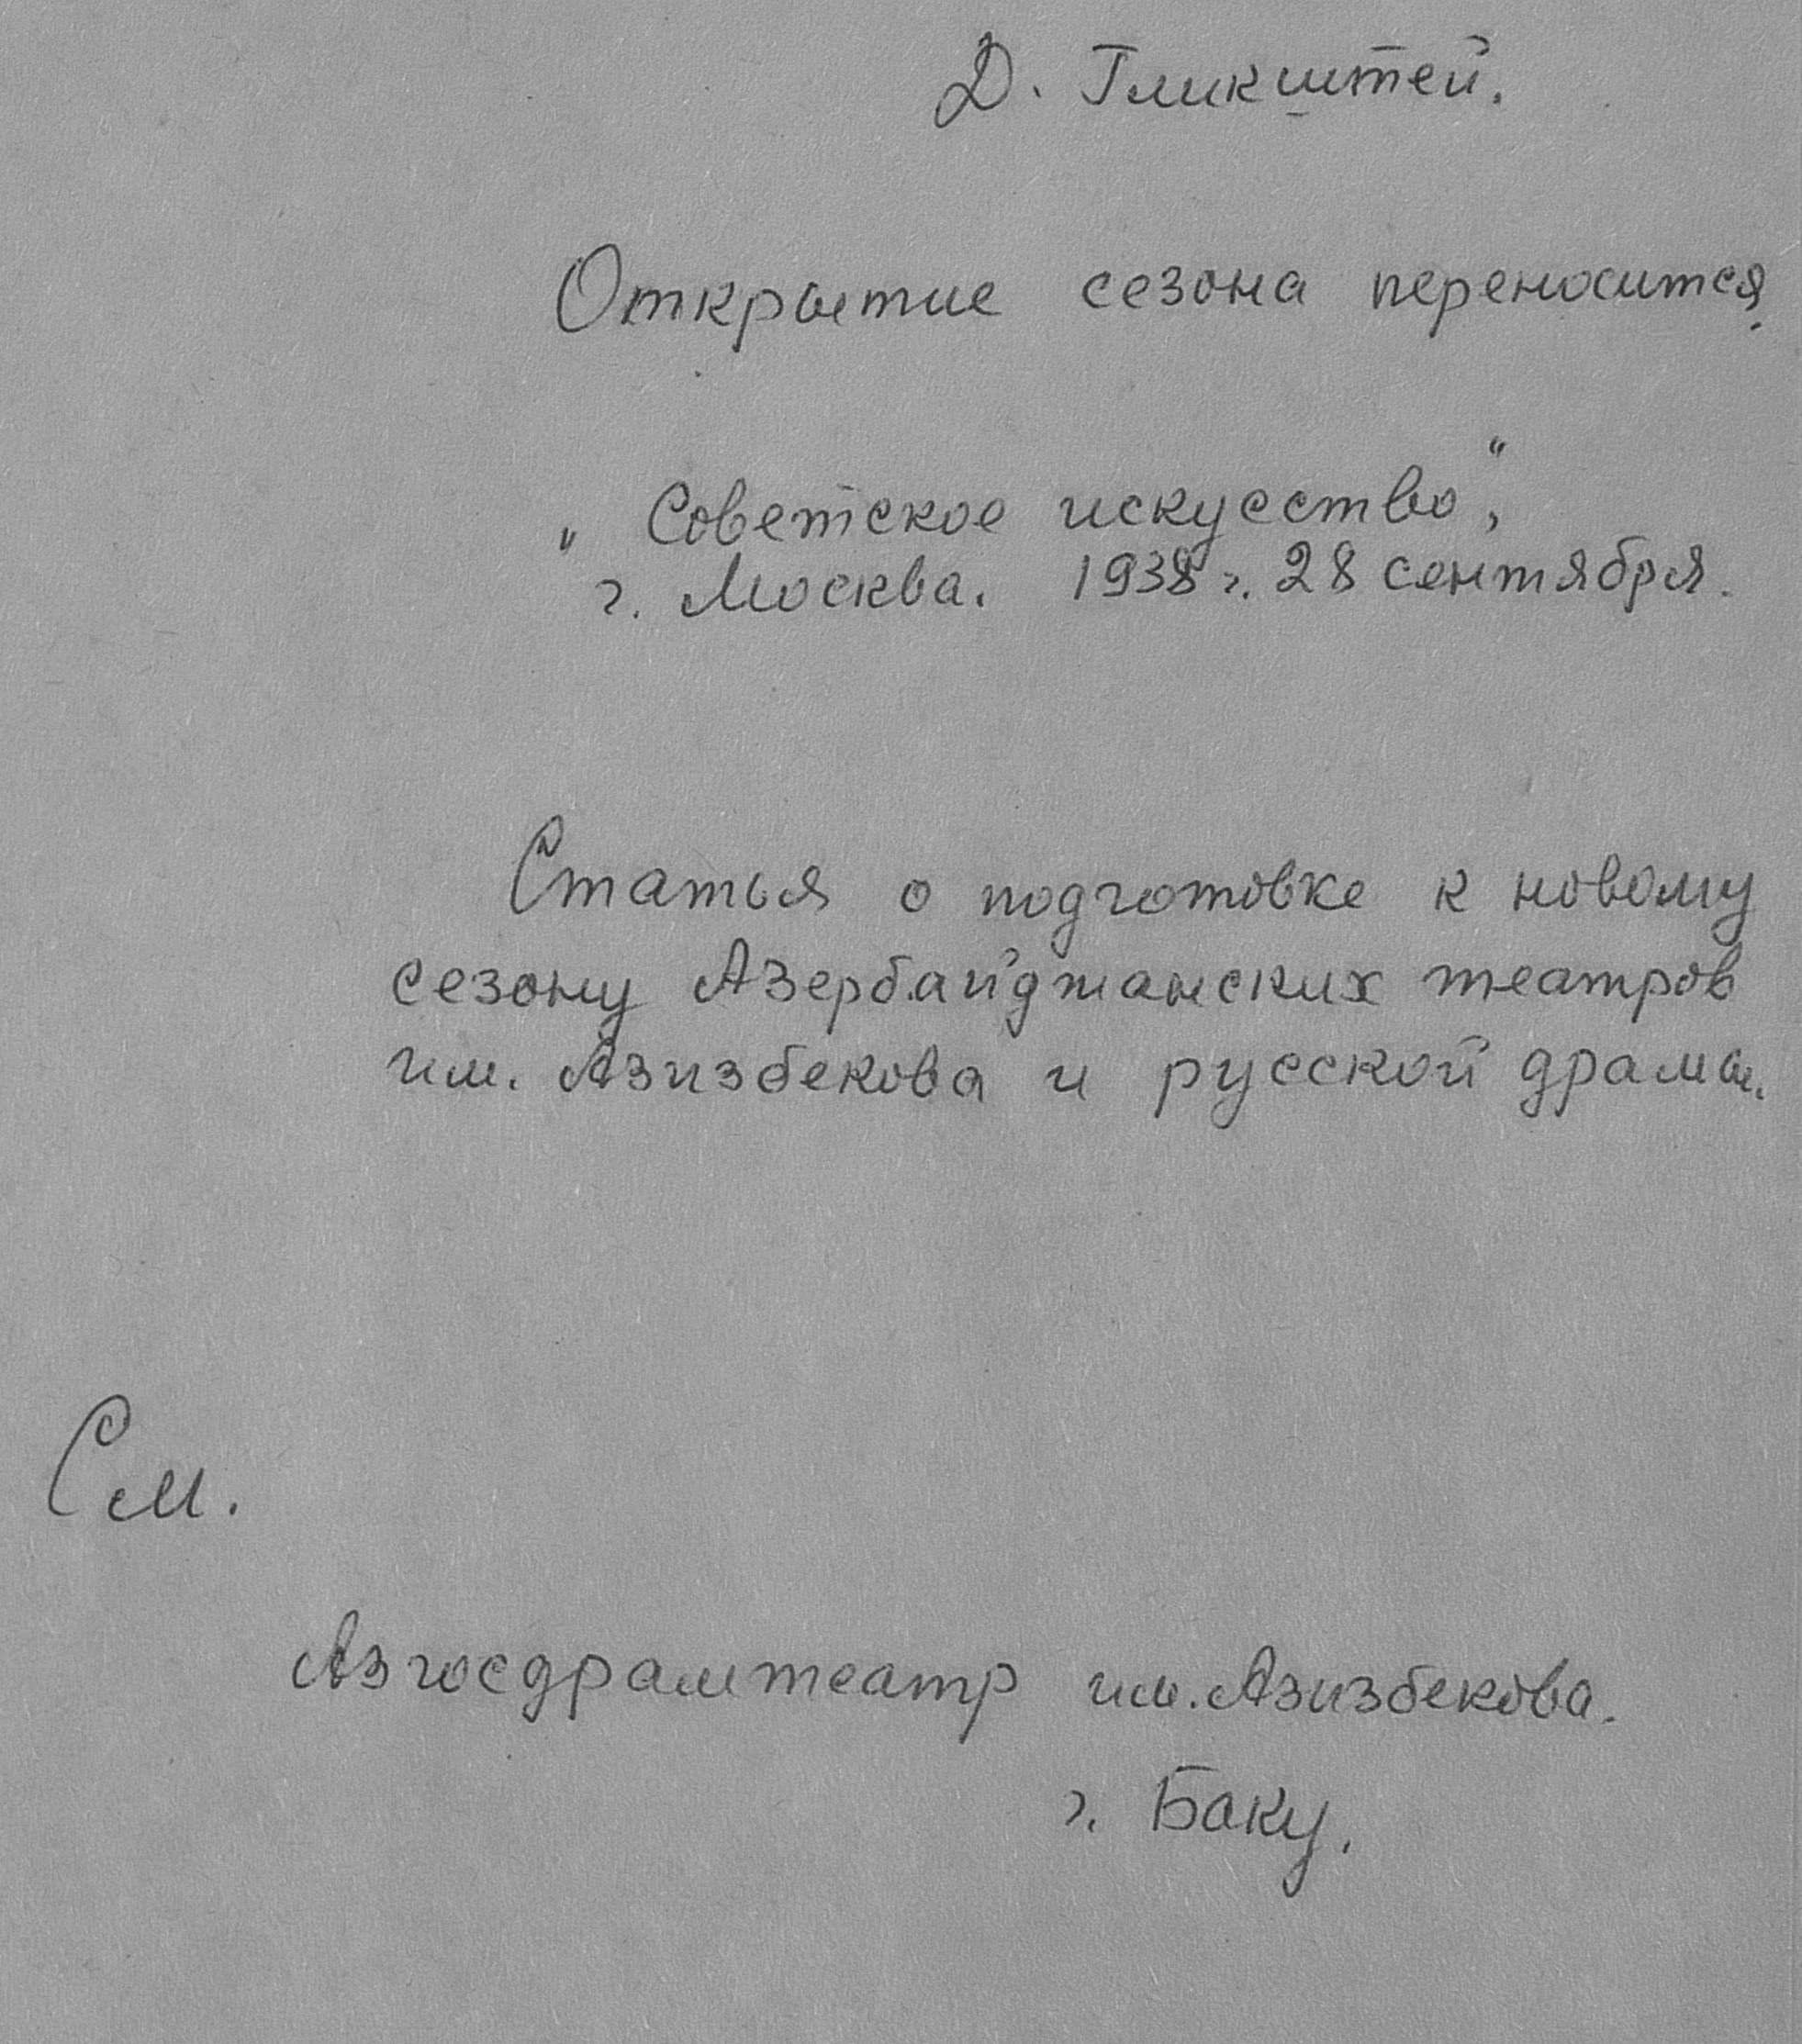 Д. Гликштей.
Открытие сезона переносится.
„Советское искусство",
г. Москва. 1938 г. 28 сентября.
Статья о подготовке к новому
сезону Азербайджанских театров
им. Азизбекова и русской драмы.
См.
Азгосдрамтеатр им. Азизбекова.
г. Баку.